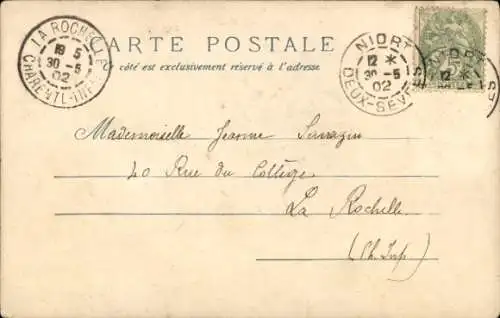 CARTE POSTALE
Ce côté est exclusivement réservé à l'adresse
LA ROCHELLE
18 5
30 -5
02
CHARENTE-INFRE
NIORT
12 *
30 -5
02
DEUX-SÈVRES
NIORT
12 *
Mademoiselle Jeanne Sarrazin
40 Rue du Collège
La Rochelle
(Ch. Inf)